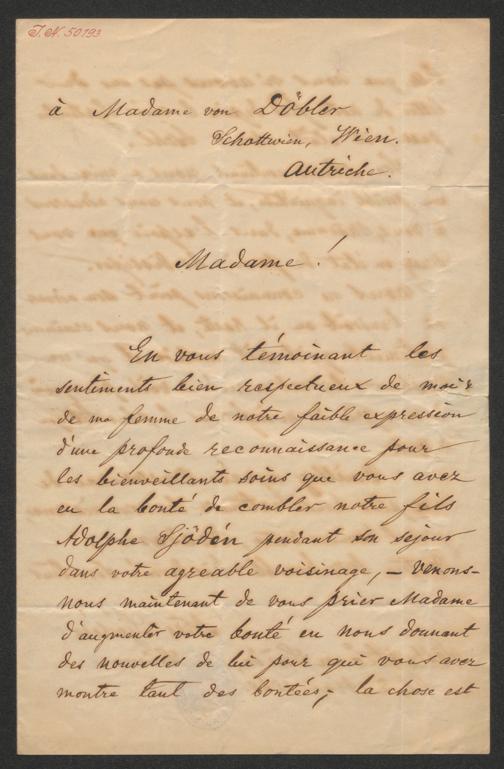 J. N. 50193
à Madame von Döbler
Schottwien, Wien.
Autriche.
Madame!
En vous témoinant les
sentiments bien respectueux de moi &
de ma femme de notre faible expression
d'une profonde reconnaissance pour
les bienveillants soins que vous avez
eu la bonté de combler notre fils
Adolphe Sjödén pendant son séjour
dans votre agreable voisinage, – venons-
nous maintenant de vous prier Madame
d'augmenter votre bonté en nous donnant
des nouvelles de lui pour qui vous avez
montre tant des bontées; la chose est